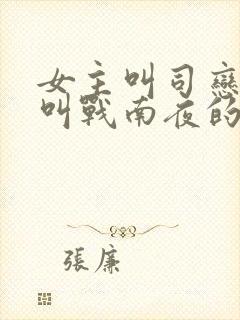 女主叫司戀
叫戰南夜的
張廉